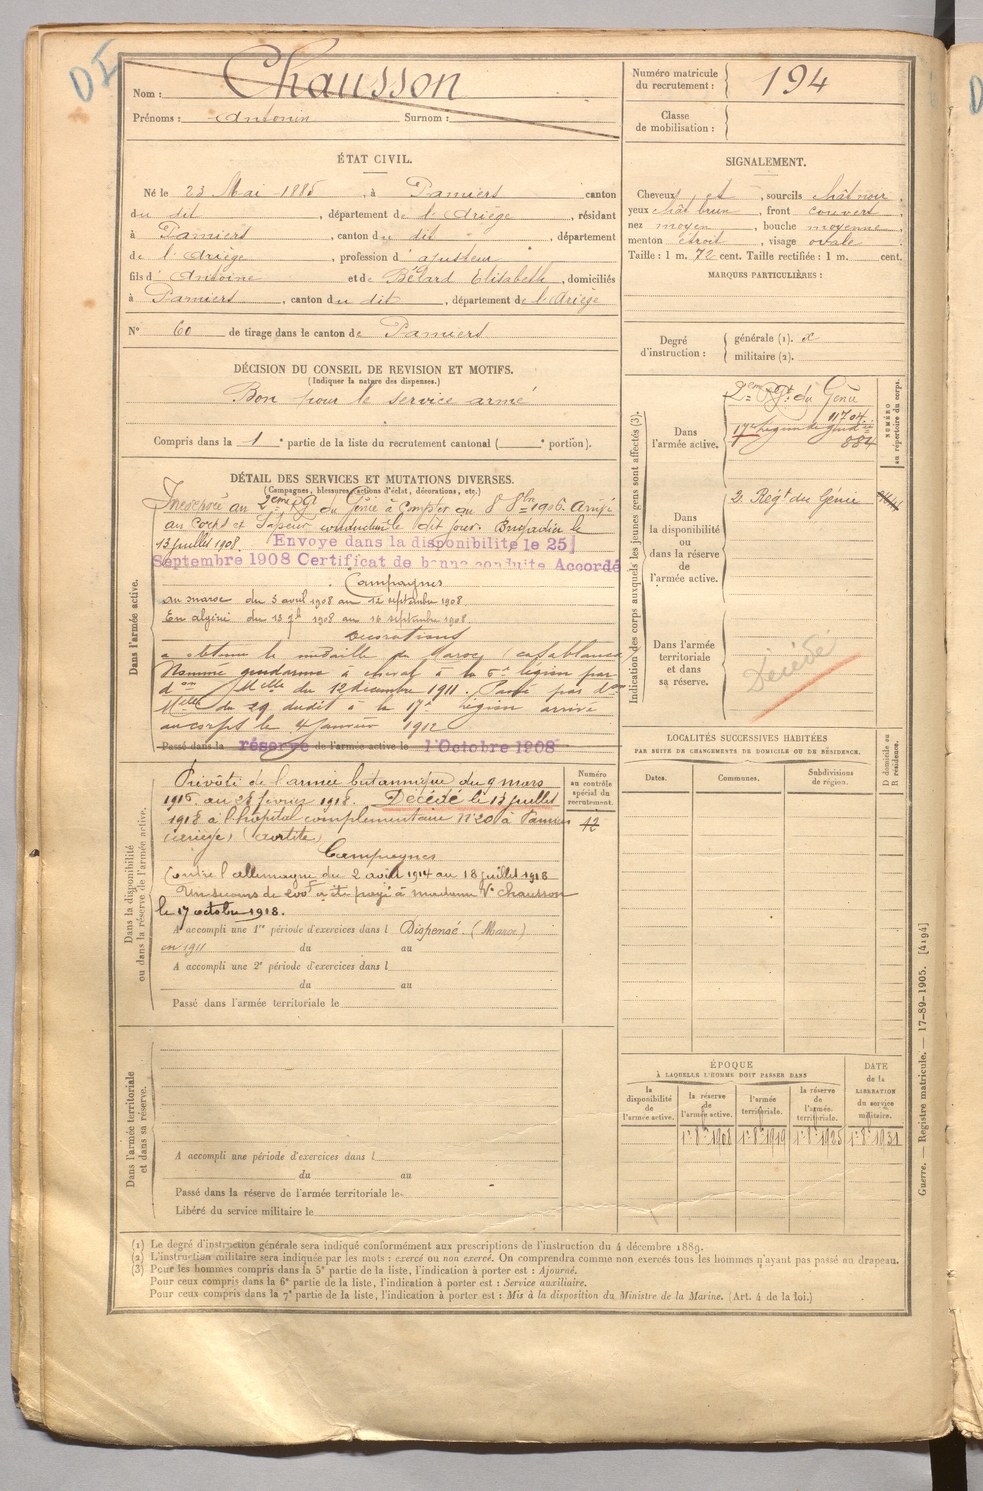 DI
Nom : Chausson
Prénoms : Antonin Surnom :
Numéro matricule du recrutement : 194
Classe de mobilisation :
ÉTAT CIVIL.
Né le 23 Mai 1885, à Pamiers canton
du dit, département de l'Ariège, résidant
à Pamiers, canton du dit, département
de l'Ariège, profession d'ajusteur
fils d'Antoine et de Bélard Elisabeth, domiciliés
à Pamiers, canton du dit, département de l'Ariège
N° 60 de tirage dans le canton de Pamiers
SIGNALEMENT.
Cheveux et, sourcils chât noir,
yeux chât brun, front couvert
nez moyen, bouche moyenne
menton étroit, visage ovale
Taille : 1 m. 72 cent. Taille rectifiée : 1 m. cent.
MARQUES PARTICULIÈRES :
Degré d'instruction : générale (1).
militaire (2).
DÉCISION DU CONSEIL DE REVISION ET MOTIFS.
(Indiquer la nature des dispenses.)
Bon pour le service armé
Compris dans la 1e partie de la liste du recrutement cantonal ( e portion).
DÉTAIL DES SERVICES ET MUTATIONS DIVERSES.
(Campagnes, blessures, actions d'éclat, décorations, etc.)
Dans l'armée active.
Incorporé au 2eme Rgt du Génie à compter du 8 8bre 1906. Arrivé
au corps et Sapeur conducteur le dit jour. Brigadier le
13 juillet 1908. Envoye dans la disponibilite le 25
Septembre 1908 Certificat de bonne conduite Accordé
Campagnes
au maroc du 3 avril 1908 au 12 septembre 1908
En algérie du 13 7b 1908 au 16 septembre 1908
Décorations
a obtenu la médaille du Maroc (Casablanca)
Nommé gendarme à cheval à la 6e légion par
don Melle du 12 decembre 1911. Passé par don
Melle du 29 dudit à la 17e région arrivé
au corps le 4 Janvier 1912
Passé dans la réserve de l'armée active le 1 Octobre 1908
Indication des corps auxquels les jeunes gens sont affectés (3).
NUMÉRO au répertoire du corps.
Dans l'armée active.
2eme Rgt du Génie
11704
17e Légion de gendie
884
Dans la disponibilité ou dans la réserve de l'armée active.
2. Régt du Génie
Dans l'armée territoriale et dans sa réserve.
Décédé
Dans la disponibilité ou dans la réserve de l'armée active.
Numéro au contrôle spécial du recrutement.
12
Prévôté de l'armée britannique du 9 mars
1915 au 28 février 1918. Décédé le 13 juillet
1918 à l'hôpital complémentaire N° 20 à Pamiers
(ariège)
Campagnes
Contre l'allemagne du 2 août 1914 au 18 juillet 1918
Un secours de 200f a été payé à madame Ve Chausson
le 17 octobre 1918.
A accompli une 1re période d'exercices dans l Dispensé. (Maroc)
en 1911 du au
A accompli une 2e période d'exercices dans l
du au
Passé dans l'armée territoriale le
LOCALITÉS SUCCESSIVES HABITÉES
PAR SUITE DE CHANGEMENTS DE DOMICILE OU DE RÉSIDENCE.
Dates. Communes. Subdivisions de région.
D domicile ou R résidence.
Dans l'armée territoriale et dans sa réserve.
A accompli une période d'exercices dans l
du au
Passé dans la réserve de l'armée territoriale le
Libéré du service militaire le
ÉPOQUE
À LAQUELLE L'HOMME DOIT PASSER DANS
la disponibilité de l'armée active. la réserve de l'armée active. l'armée territoriale. la réserve de l'armée territoriale.
DATE de la LIBÉRATION du service militaire.
1r 8e 1908 1r 8e 1919 1r 8e 1925 1r 8e 1931
Guerre. — Registre matricule. — 17-89-1905. [4194]
(1) Le degré d'instruction générale sera indiqué conformément aux prescriptions de l'instruction du 4 décembre 1889.
(2) L'instruction militaire sera indiquée par les mots : exercé ou non exercé. On comprendra comme non exercés tous les hommes n'ayant pas passé au drapeau.
(3) Pour les hommes compris dans la 5e partie de la liste, l'indication à porter est : Ajourné.
Pour ceux compris dans la 6e partie de la liste, l'indication à porter est : Service auxiliaire.
Pour ceux compris dans la 7e partie de la liste, l'indication à porter est : Mis à la disposition du Ministre de la Marine. (Art. 4 de la loi.)